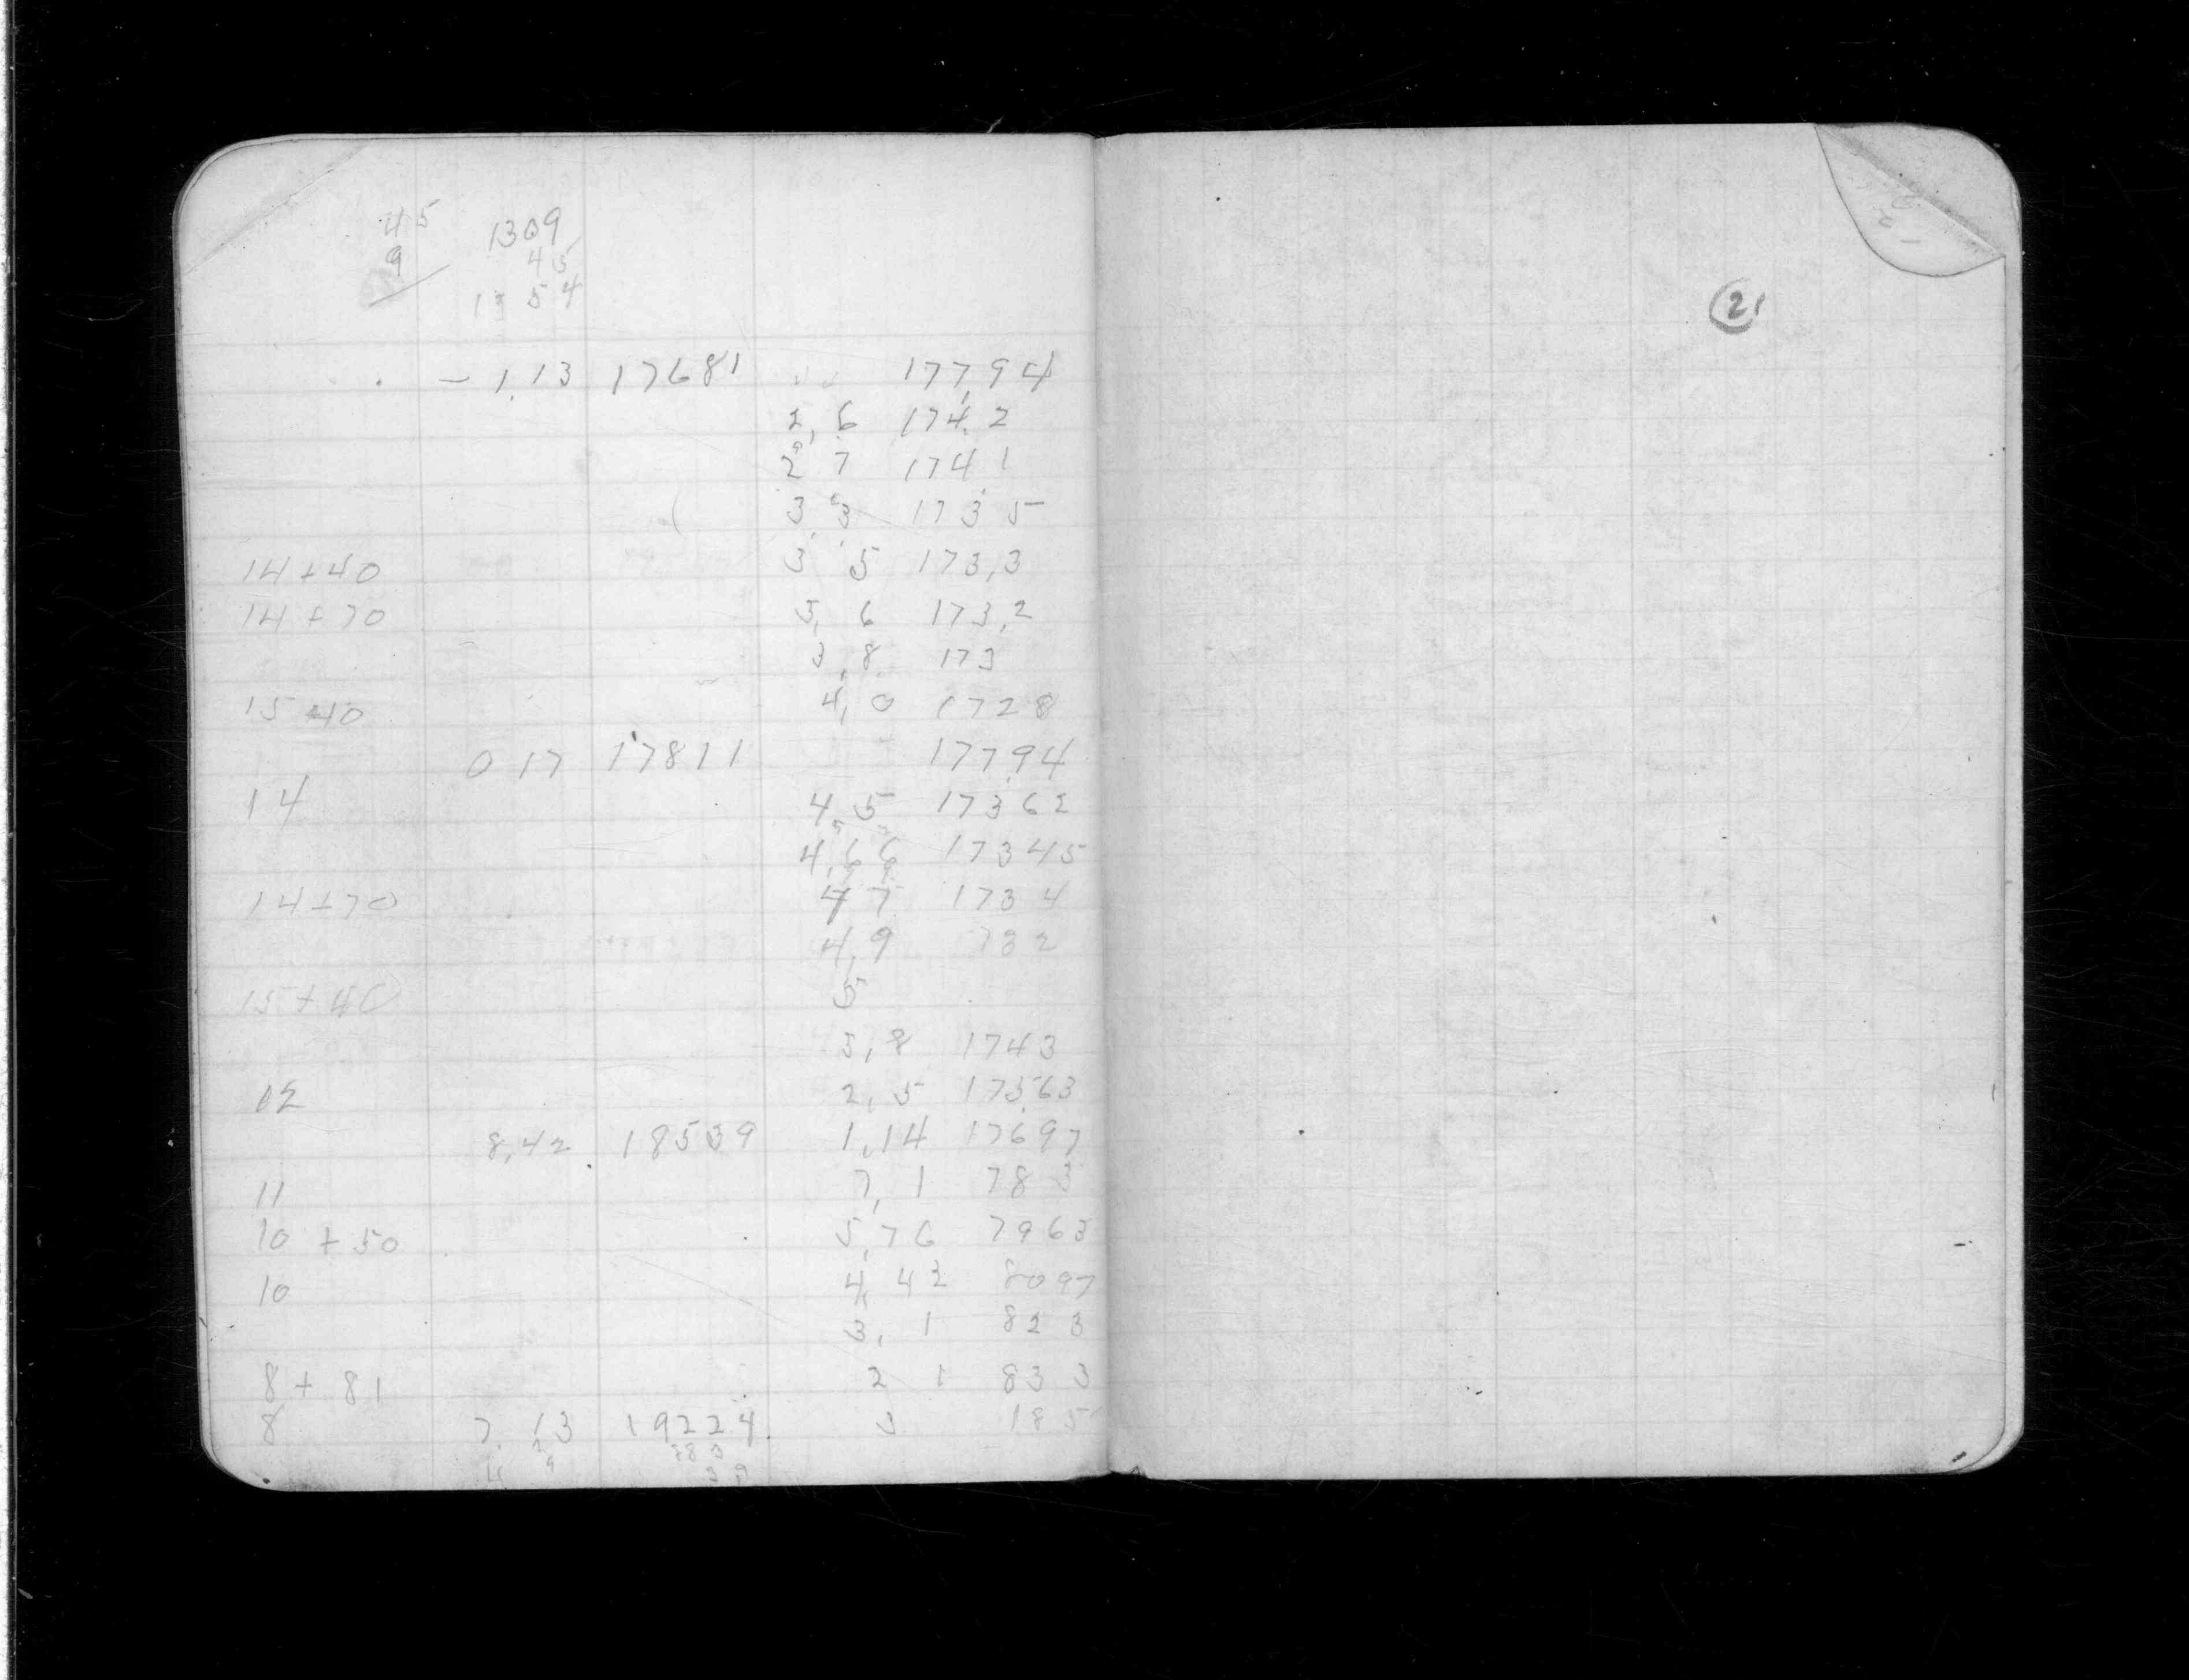 45 1309
9 45
1354
- 1.13 17681 177,94
2,6 174.2
2 7 174 1
3,3 173 5
14+40 3 5 173,3
14+70 3, 6 173,2
3,8 173
15 40 4,0 1728
0 17 17811 177.94
14 4,5 173 62
4,66 17345
14+70 4 7 173 4
4,9 732
15+40 5
5,8 1743
12 2,5 17363
8,42 18539 1,14 17697
11 7,1 78 3
10 + 50 5,76 7963
10 4,42 8097
3, 1 82 3
8+ 81 2 1 83 3
8 7.13 19224 3 18 5
21